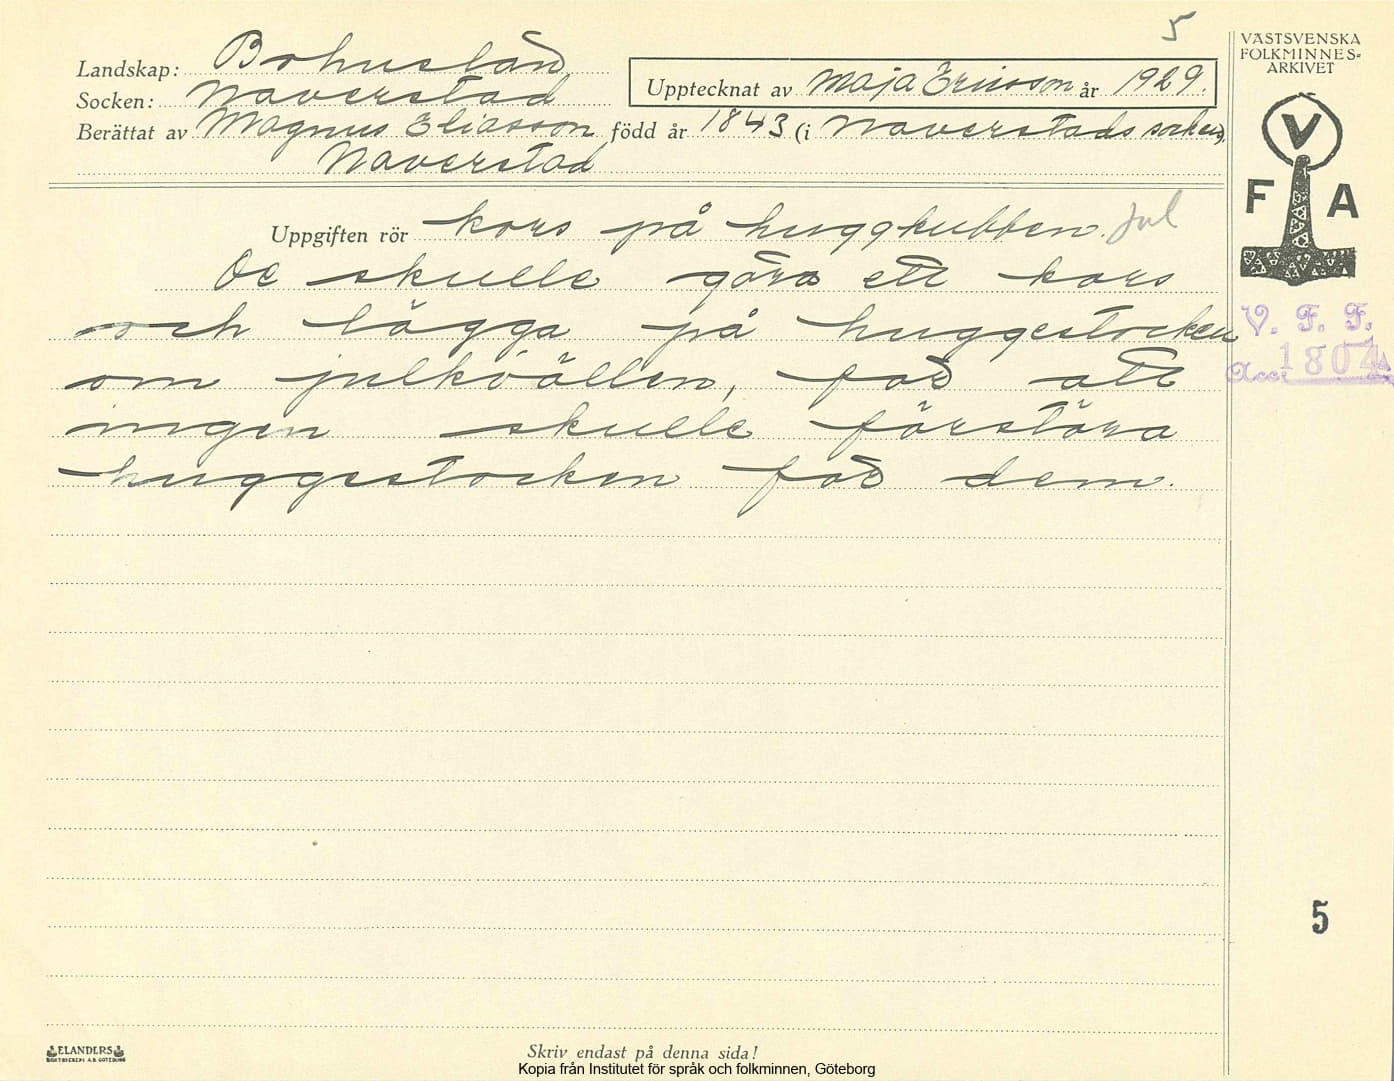 5
VÄSTSVENSKA
FOLKMINNES-
ARKIVET
Landskap: Bohuslän
Socken: Naverstad
Upptecknat av Maja Ericsson år 1929.
Berättat av Magnus Eliasson född år 1843 (i Naverstads socken).
Naverstad
V
F A
Uppgiften rör kors på huggkubben. Jul
De skulle göra ett kors
och lägga på huggestocken
om julkvällen, för att
ingen skulle förstöra
huggestocken för dem.
V. F. F.
Acc. 1804
5
ELANDERS
BOKTRYCKERI A.B. GÖTEBORG
Skriv endast på denna sida!
Kopia från Institutet för språk och folkminnen, Göteborg